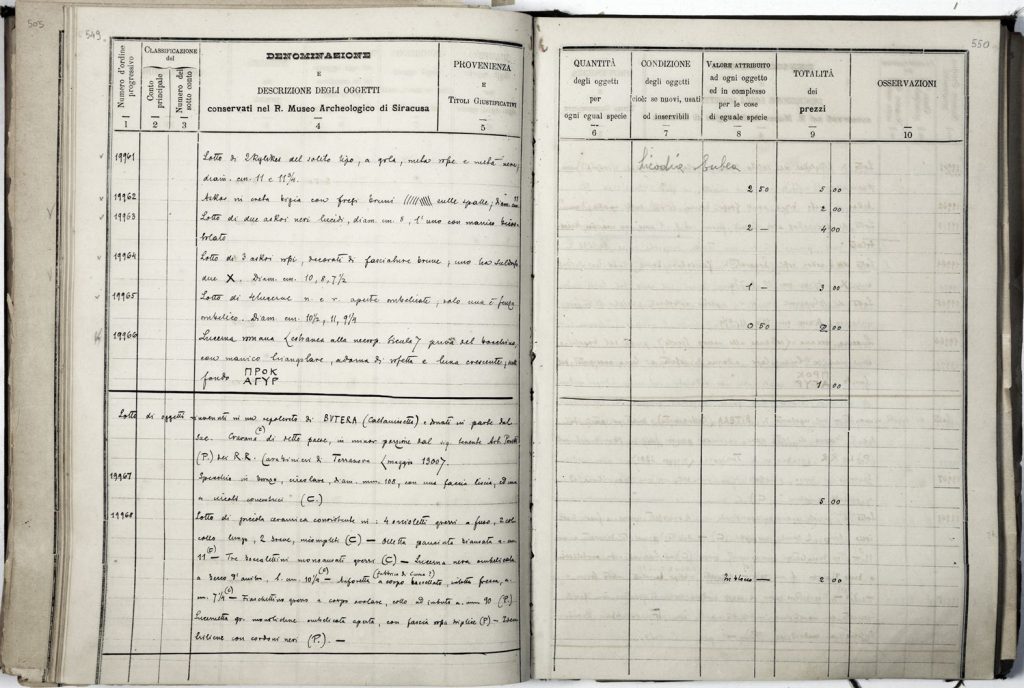 505
549
550
Numero d'ordine progressivo
CLASSIFICAZIONE del
Conto principale
Numero del sotto conto
DENOMINAZIONE
E
DESCRIZIONE DEGLI OGGETTI
conservati nel R. Museo Archeologico di Siracusa
PROVENIENZA
E
TITOLI GIUSTIFICATIVI
QUANTITÀ
degli oggetti
per
ogni egual specie
CONDIZIONE
degli oggetti
cioè: se nuovi, usati
od inservibili
VALORE ATTRIBUITO
ad ogni oggetto
ed in complesso
per le cose
di eguale specie
TOTALITÀ
dei
prezzi
OSSERVAZIONI
1 2 3 4 5 6 7 8 9 10
Licodia Eubea
19961 Lotto di 2 kylikes del solito tipo, a gola, metà rope e metà nere,
diam. cm. 11 e 11 3/4. 2 50 5 00
19962 Askos in creta bigia con fregi bruni sulle spalle; diam. cm. 11 2 00
19963 Lotto di due askoi neri lucidi, diam. cm. 8, l'uno con manico 2 — 4 00
19964 Lotto di 3 askoi ropi, decorati di fasciature brune; uno ha
due X. Diam. cm. 10, 8, 7 1/2 1 — 3 00
19965 Lotto di 4 lucerne n. e r. aperte ombelicate; solo una è senza
ombelico. Diam. cm. 10 1/2, 11, 9 1/4 0 50 2 00
19966 Lucerna romana (estranea alla necrop. sicula) priva del beccuccio,
con manico triangolare, adorna di rosetta e luna crescente; sul
fondo ΠΡΟΚ
ΑΓΥΡ 1 00
Lotto di oggetti rinvenuti in un sepolcreto di BUTERA (Caltanissetta) e donati in parte dal
sac. Cravana (C) di detto paese, in minor porzione dal sig. tenente
(P.) dei R.R. Carabinieri di Terranova (maggio 1900).
19967 Specchio in bronzo, circolare, diam. mm. 108, con una fascia liscia, ed una
a circoli concentrici (C.) 5 00
19968 Lotto di piccola ceramica consistente in: 4 orcioletti grezzi a fuso, 2 col
collo lungo, 2 breve, incompleti (C) — Olletta panciuta biansata a. cm.
11 (C) — Tre boccalettini monoansati grezzi (C) — Lucerna nera ombelicata
a becco d'anitra, l. cm. 10 1/4 — Anforetta (fabbrica di Cuma?) a corpo baccellato,
7 1/4 — Fiaschettino grezzo a corpo ovolare, collo ad imbuto a. mm. 90 (P.)
Lucernetta gr. monolicne ombelicata aperta, con fascia ropa triplice (P) —
bilicne con cordoni neri (P.). —
In blocco — 2 00